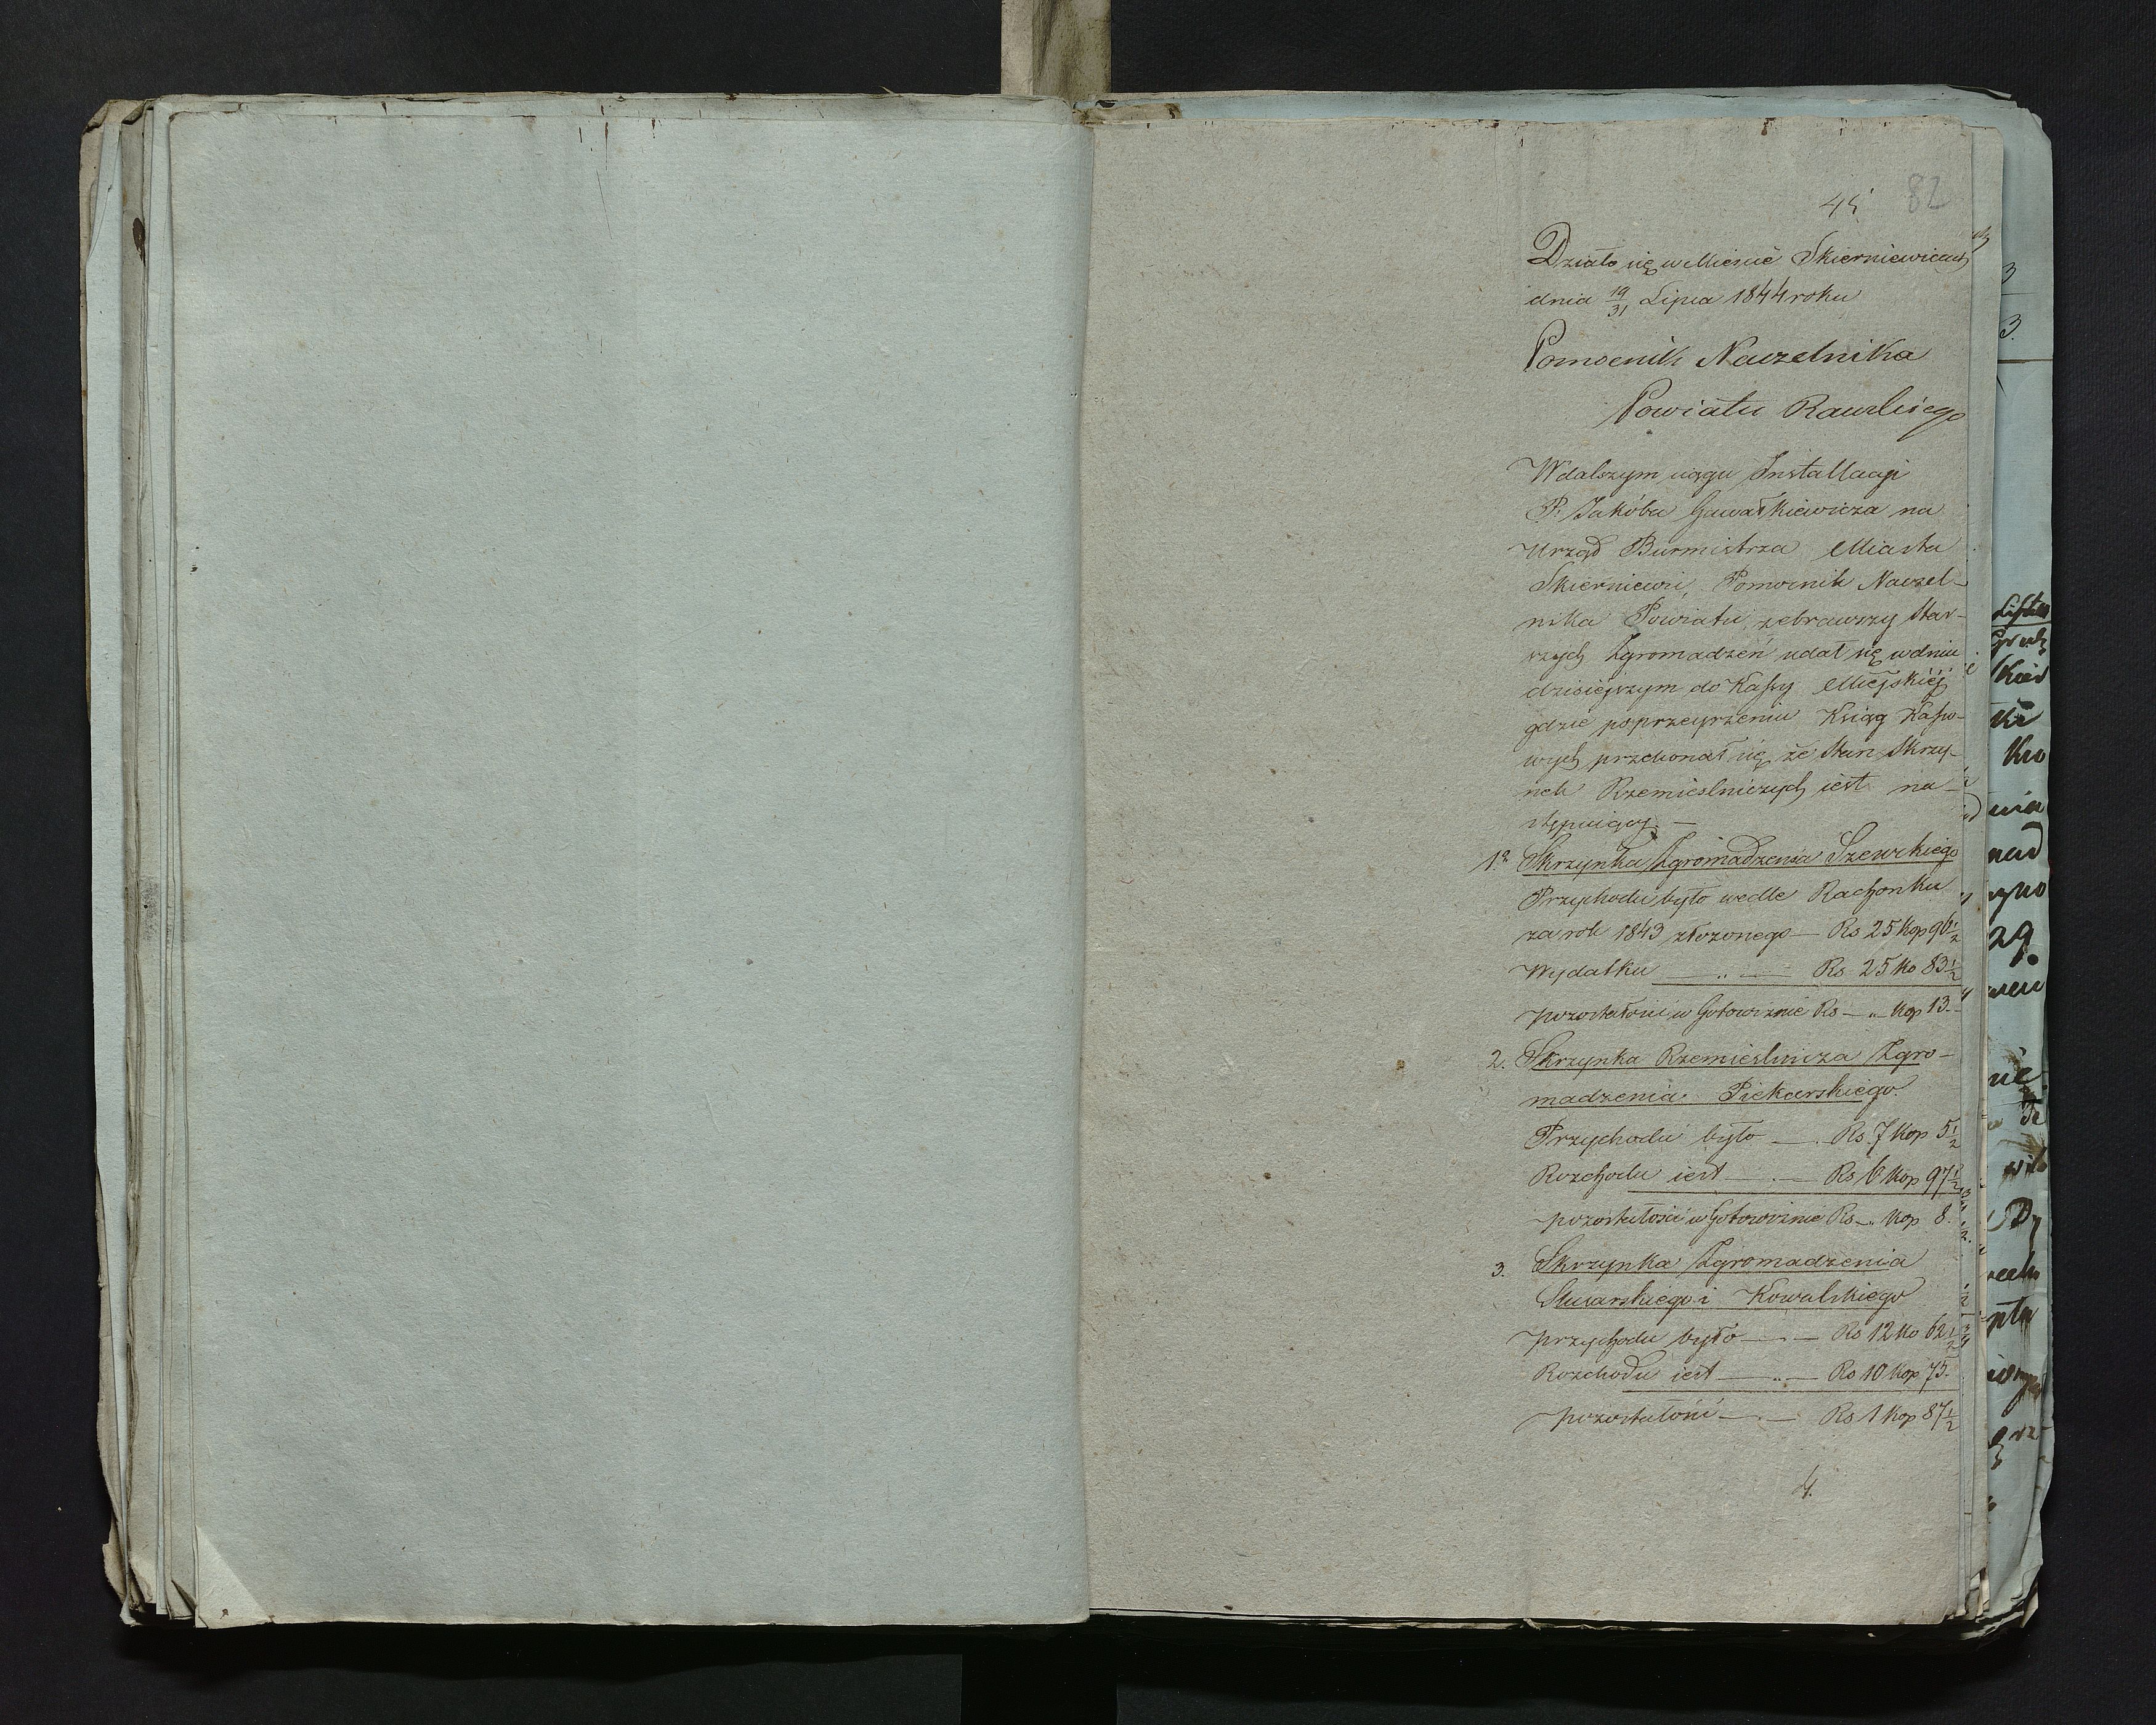 45 82
Działo się w Mieście Skierniewicach
dnia 19/31 Lipca 1844 roku
Pomocnik Naczelnika
Powiatu Rawskiego
W dalszym ciągu Installacyi
P. Jakóba Gawałkiewicza na
Urząd Burmistrza Miasta
Skierniewic, Pomocnik Naczel-
nika Powiatu, zebrawszy Star-
szych Zgromadzeń udał się w dniu
dzisiéjszym do Kassy Miéjskiéj
gdzie po przeyrzeniu Ksiąg Kasso-
wych przekonał się że Stan Skrzy-
nek Rzemieslniczych iest na-
stępuiący. —
1º Skrzynka Zgromadzenia Szewckiego
Przychodu było wedle Rachonku
za rok 1843 złożonego — Rs 25 Kop 96½
Wydatku — „ — Rs 25 Ko 83½
pozostałości w Gotowiznie Rs — „ — Kop 13. —
2. Skrzynka Rzemieślnicza Zgro-
madzenia Piekarskiego.
Przychodu było — . Rs 7 Kop 5½
Rozchodu iest — . — Rs 6 Kop 97½
pozostałości w Gotowiznie Rs — „ Kop 8.
3. Skrzynka Zgromadzenia
Slusarskiego i Kowalskiego
przychodu było — . — Rs 12 Ko 62½
Rozchodu iest — „ — Rs 10 Kop 75.
pozostałość — . — Rs 1 Kop 87½
4.